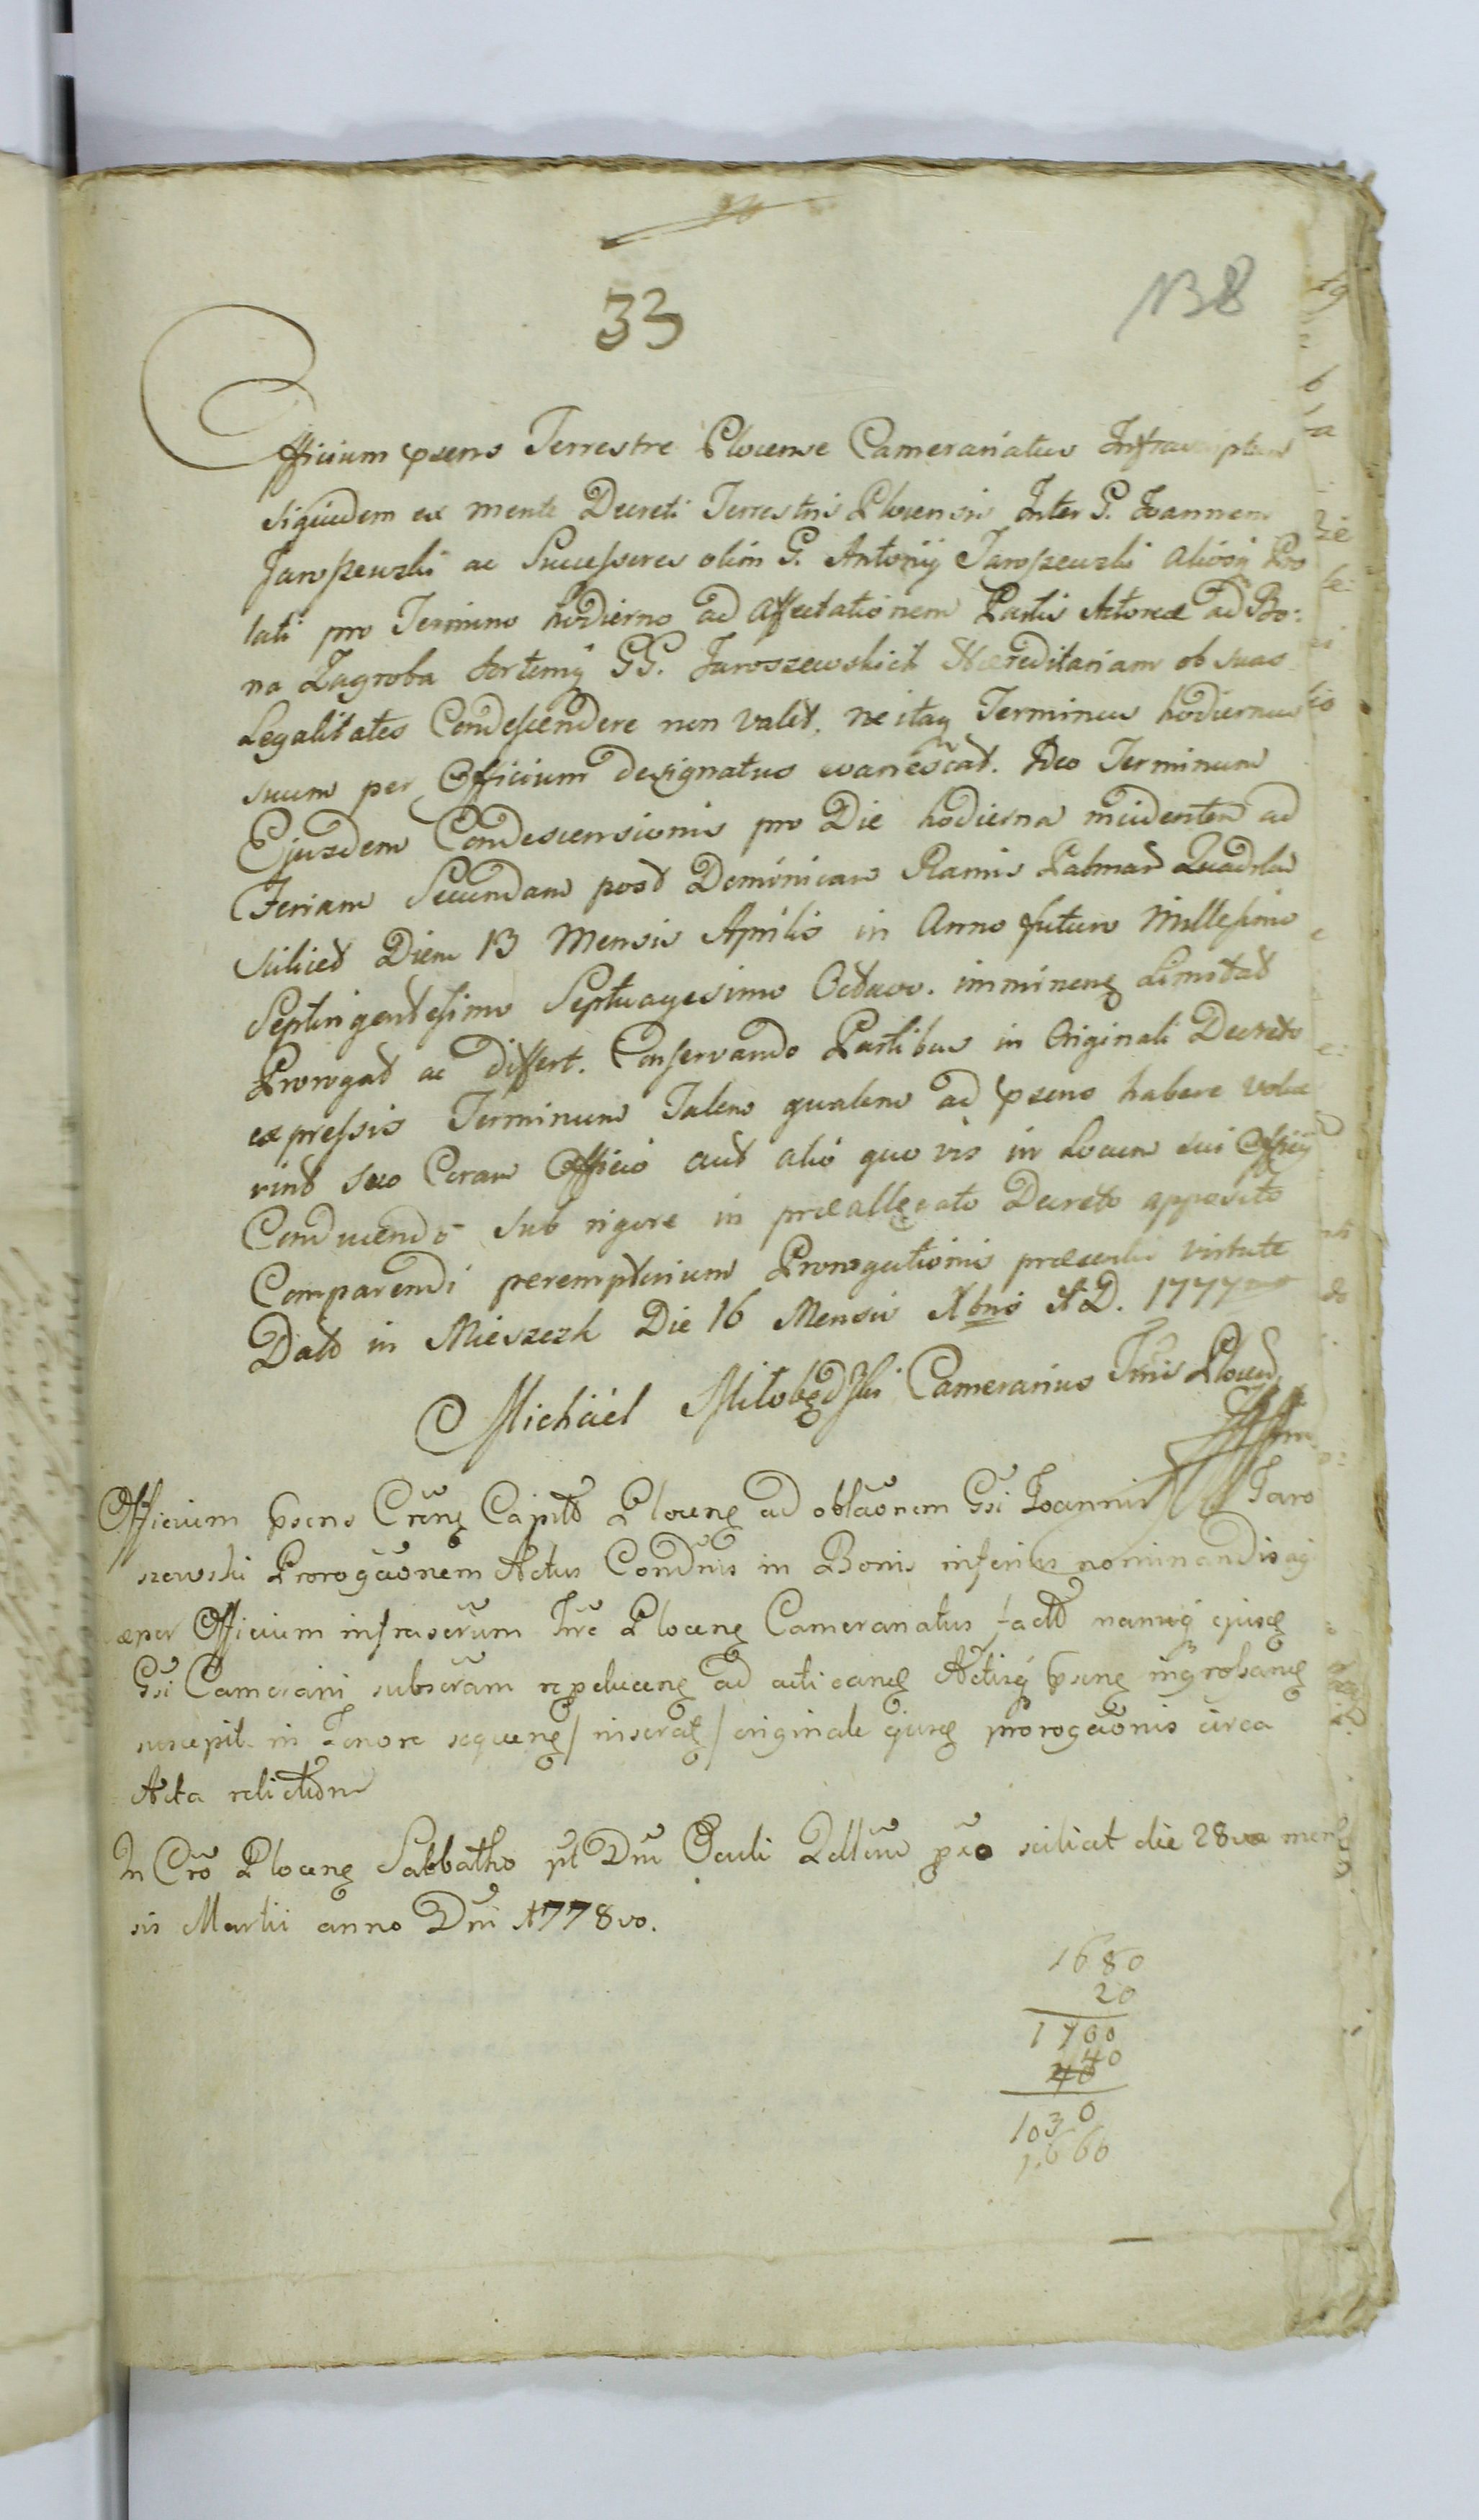 33
138
Officium psens Terrestre Plocense Camerariatus Infrascriptum
siquidem ex mente Decreti Terrestris Plocensis Inter G. Joannem
Jaroszewski ac Successores olim G. Antonij Jaroszewski aliosq Pro
lati pro Termino hodierno ad affectationem Partis Actoreæ ad Bo:
na Zagroba Sortemq GG. Jaroszewskich Hæreditariam ob suas
Legalitates Condescendere non valet, ne itaq Terminus hodiernus
suum per Officium designatus evanescat. Ideo Terminum
Ejusdem Condescensionis pro Die hodierna incidentem ad
Feriam Secundam post Dominicam Ramis Palmar
scilicet Diem 13 Mensis Aprilis in Anno futuro Millesimo
Septingentesimo Septuagesimo Octavo. imminen Limitat
Prorogat ac differt. Conservando Partibus in Originali Decreto
expressis Terminum Talem qualem ad psens habere volue
rint suo Coram Officio aut alio quo vis in Locum sui Officij
Conducendo sub rigore in præallegato Decreto apposito
Comparendi peremptorium Prorogationis præsentis virtute
Dat in Mieszczk Die 16 Mensis Xbris A D. 1777mo
Michael Miłobędzki Camerarius Tris Plocen
Officium psens Cren Capit Plocen ad oblaonem Gsi Joannis Jaro
szewski Prorogaonem Actus Condnis in Bonis inferius nominandis
per Officium infrascrum Tre Plocen Camerariatus fact manuq ejusd
Gsi Camerarij subscram repelucen ad acticand Actisq psen ingrossand
suscepit in Tenore sequen / inserat / originale ejusd prorogaonis circa
Acta relictum
In Cro Plocen Sabbatho pt Dm Oculi scilicet die 28va men
sis Martii anno Dni 1778vo.
1680
20
1700
40
1030
1660